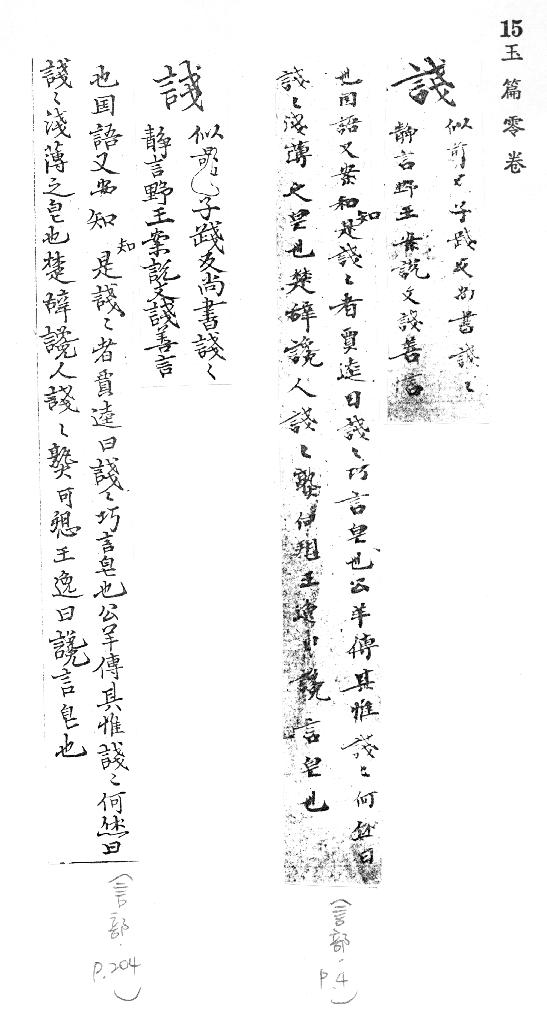 15玉篇零卷
諓
似剪、子踐反尚書諓〻
靜言野王案說文諓善言
也国語又案知是諓〻者賈逵曰諓〻巧言皃也公羊傳其惟諓〻何然曰
諓〻淺薄之皃也楚辞讒人諓〻孰王逸曰讒言皃也
(言部・P.4)
諓
似、子踐反尚書諓〻
靜言野王案說文諓善言
也国語又安知是諓〻者賈逵曰諓〻巧言皃也公羊傳其惟諓〻何然曰
諓〻淺薄之皃也楚辞讒人諓〻可愬王逸曰讒言皃也
(言部・P.204)